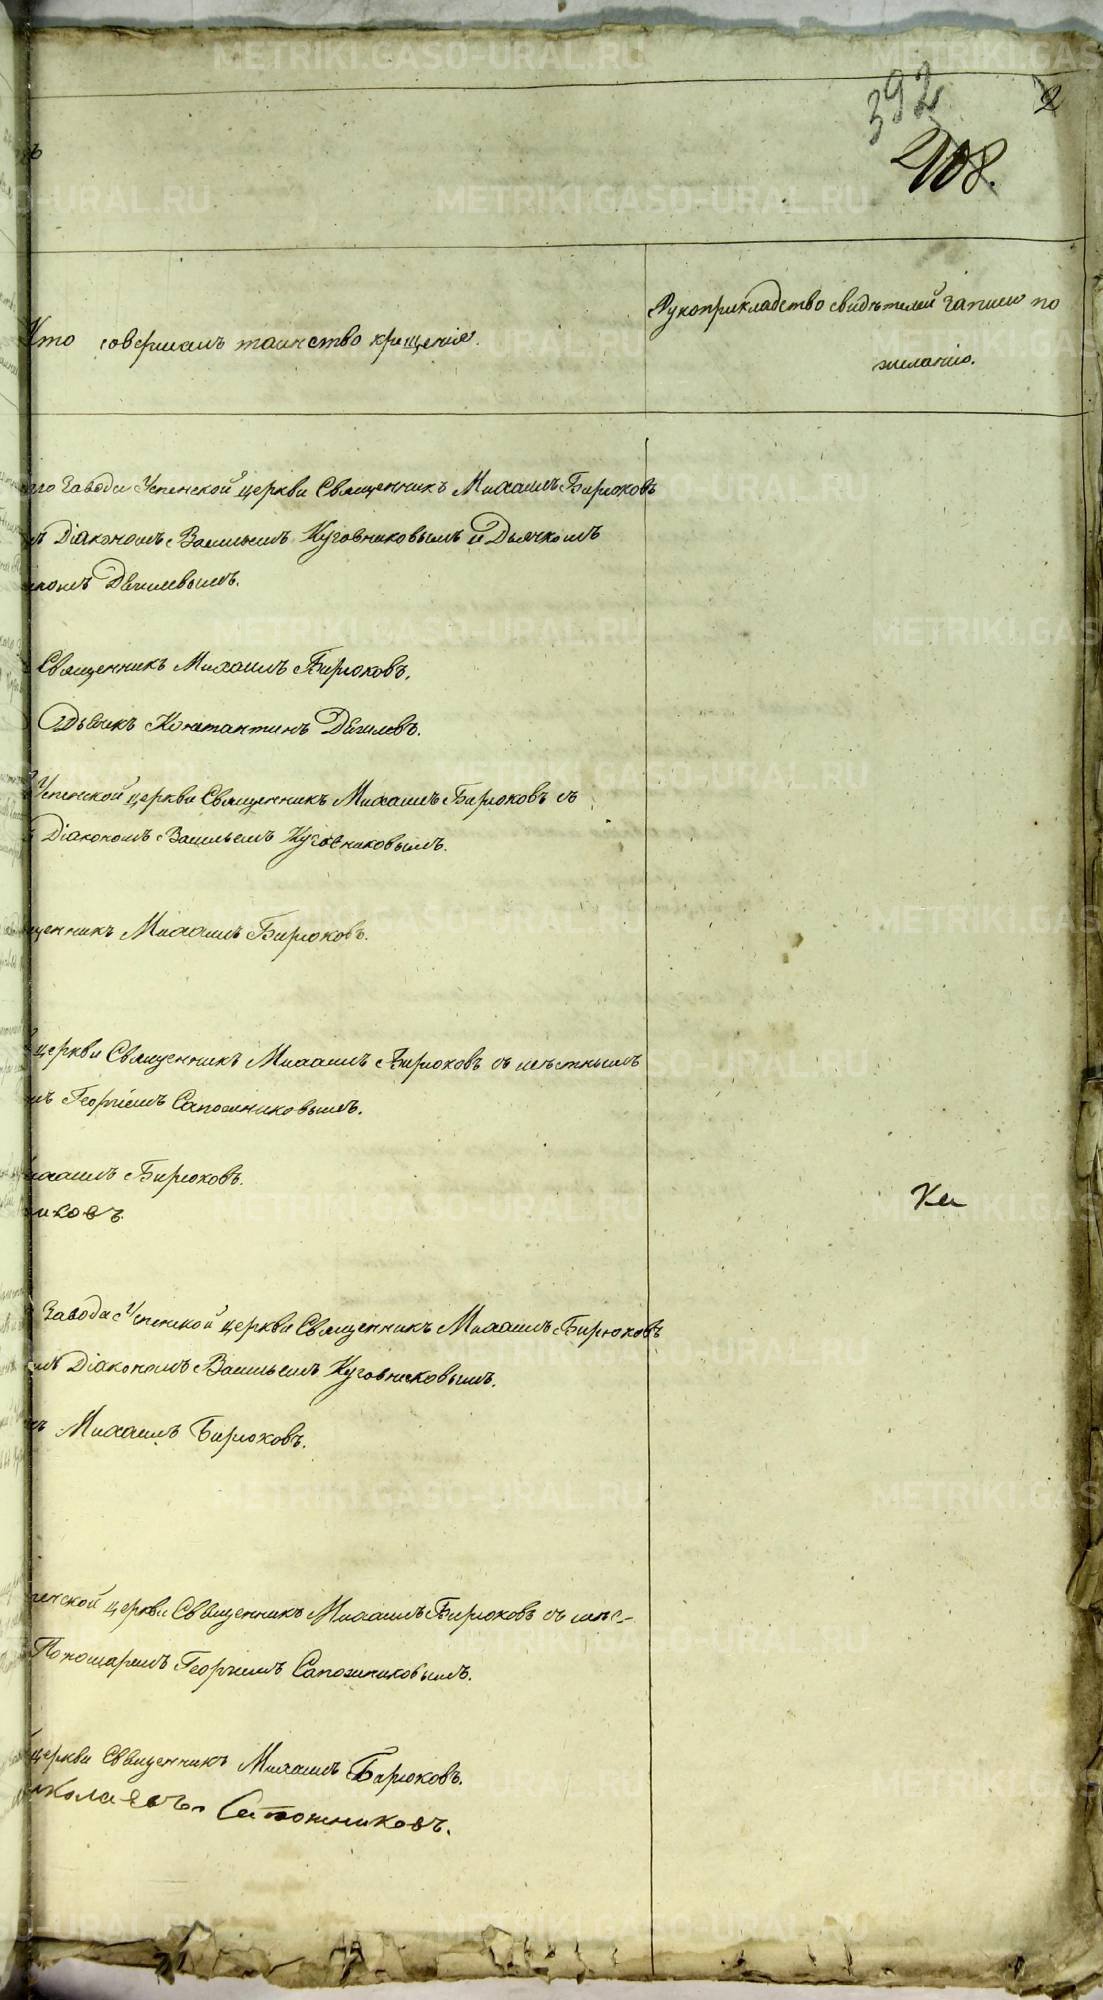 392
2
208.
Кто совершалъ таинство крещенія.
Рукоприкладство свидѣтелей записи по
желанію.
завода Успенской церкви Священникъ Михаилъ Бирюковъ
Діакономъ Васильемъ Кузовниковымъ и Дьячкомъ
Священникъ Михаилъ Бирюковъ.
Дьячекъ Константинъ
Успенской церкви Священникъ Михаилъ Бирюковъ съ
Діакономъ Васильемъ Кузовниковымъ.
щенникъ Михаилъ Бирюковъ.
церкви Священникъ Михаилъ Бирюковъ съ мѣстнымъ
Георгіемъ Сапожниковымъ.
хаилъ Бирюковъ.
никовъ.
Ка
Завода Успенской церкви Священникъ Михаилъ Бирюковъ
Діакономъ Васильемъ Кузовниковымъ.
Михаилъ Бирюковъ.
пенской церкви Священникъ Михаилъ Бирюковъ съ мѣс-
Пономаремъ Георгіемъ Сапожниковымъ.
церкви Священникъ Михаилъ Бирюковъ.
Сапожниковъ.
METRIKI.GASO-URAL.RU